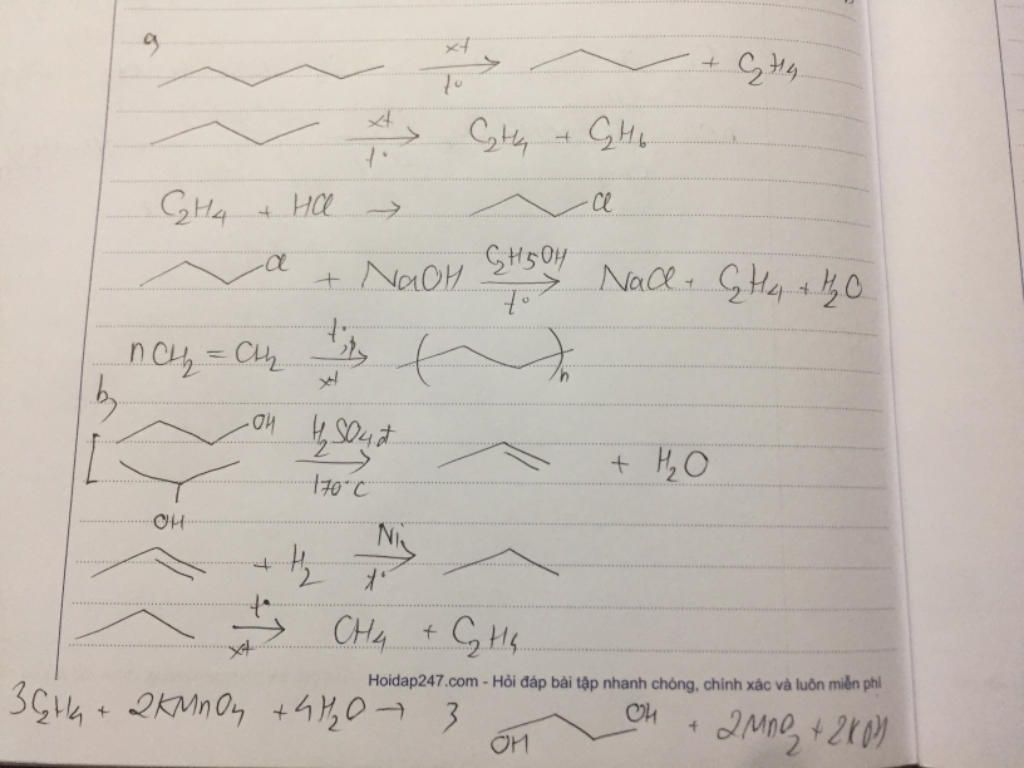 a)
xt
→
t°
+ C₂H₄
xt
→
t°
C₂H₄ + C₂H₆
C₂H₄ + HCl → Cl
Cl + NaOH
C₂H5OH
→
t°
NaCl + C₂H₄ + H₂O
nCH₂ = CH₂
t°, p
→
xt
( )n
b)
OH
OH
H₂SO₄đ
→
170°C
+ H₂O
+ H₂
Ni,
→
t°
t°
→
xt
CH₄ + C₂H₄
Hoidap247.com - Hỏi đáp bài tập nhanh chóng, chính xác và luôn miễn phí
3C₂H₄ + 2KMnO₄ + 4H₂O → 3 OH OH + 2MnO₂ + 2KOH